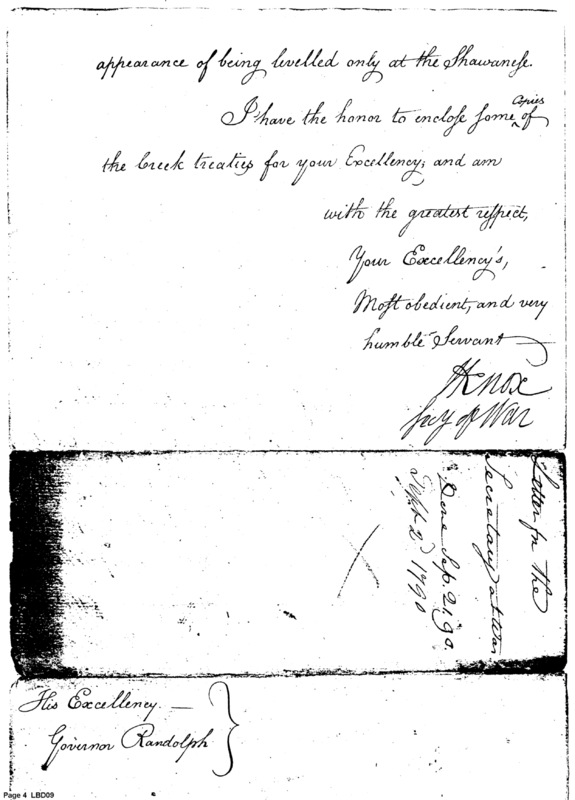 appearance of being levelled only at the Shawanese.
I have the honor to enclose some Copies of
the Creek treaties for your Excellency; and am
with the greatest respect,
Your Excellency's,
Most obedient, and very
humble Servant
HKnox
Secy of War
Letter fm the
Secretary at War
Sep. 2. 90.
Sept. 2d 1790
His Excellency
Governor Randolph
Page 4 LBD09